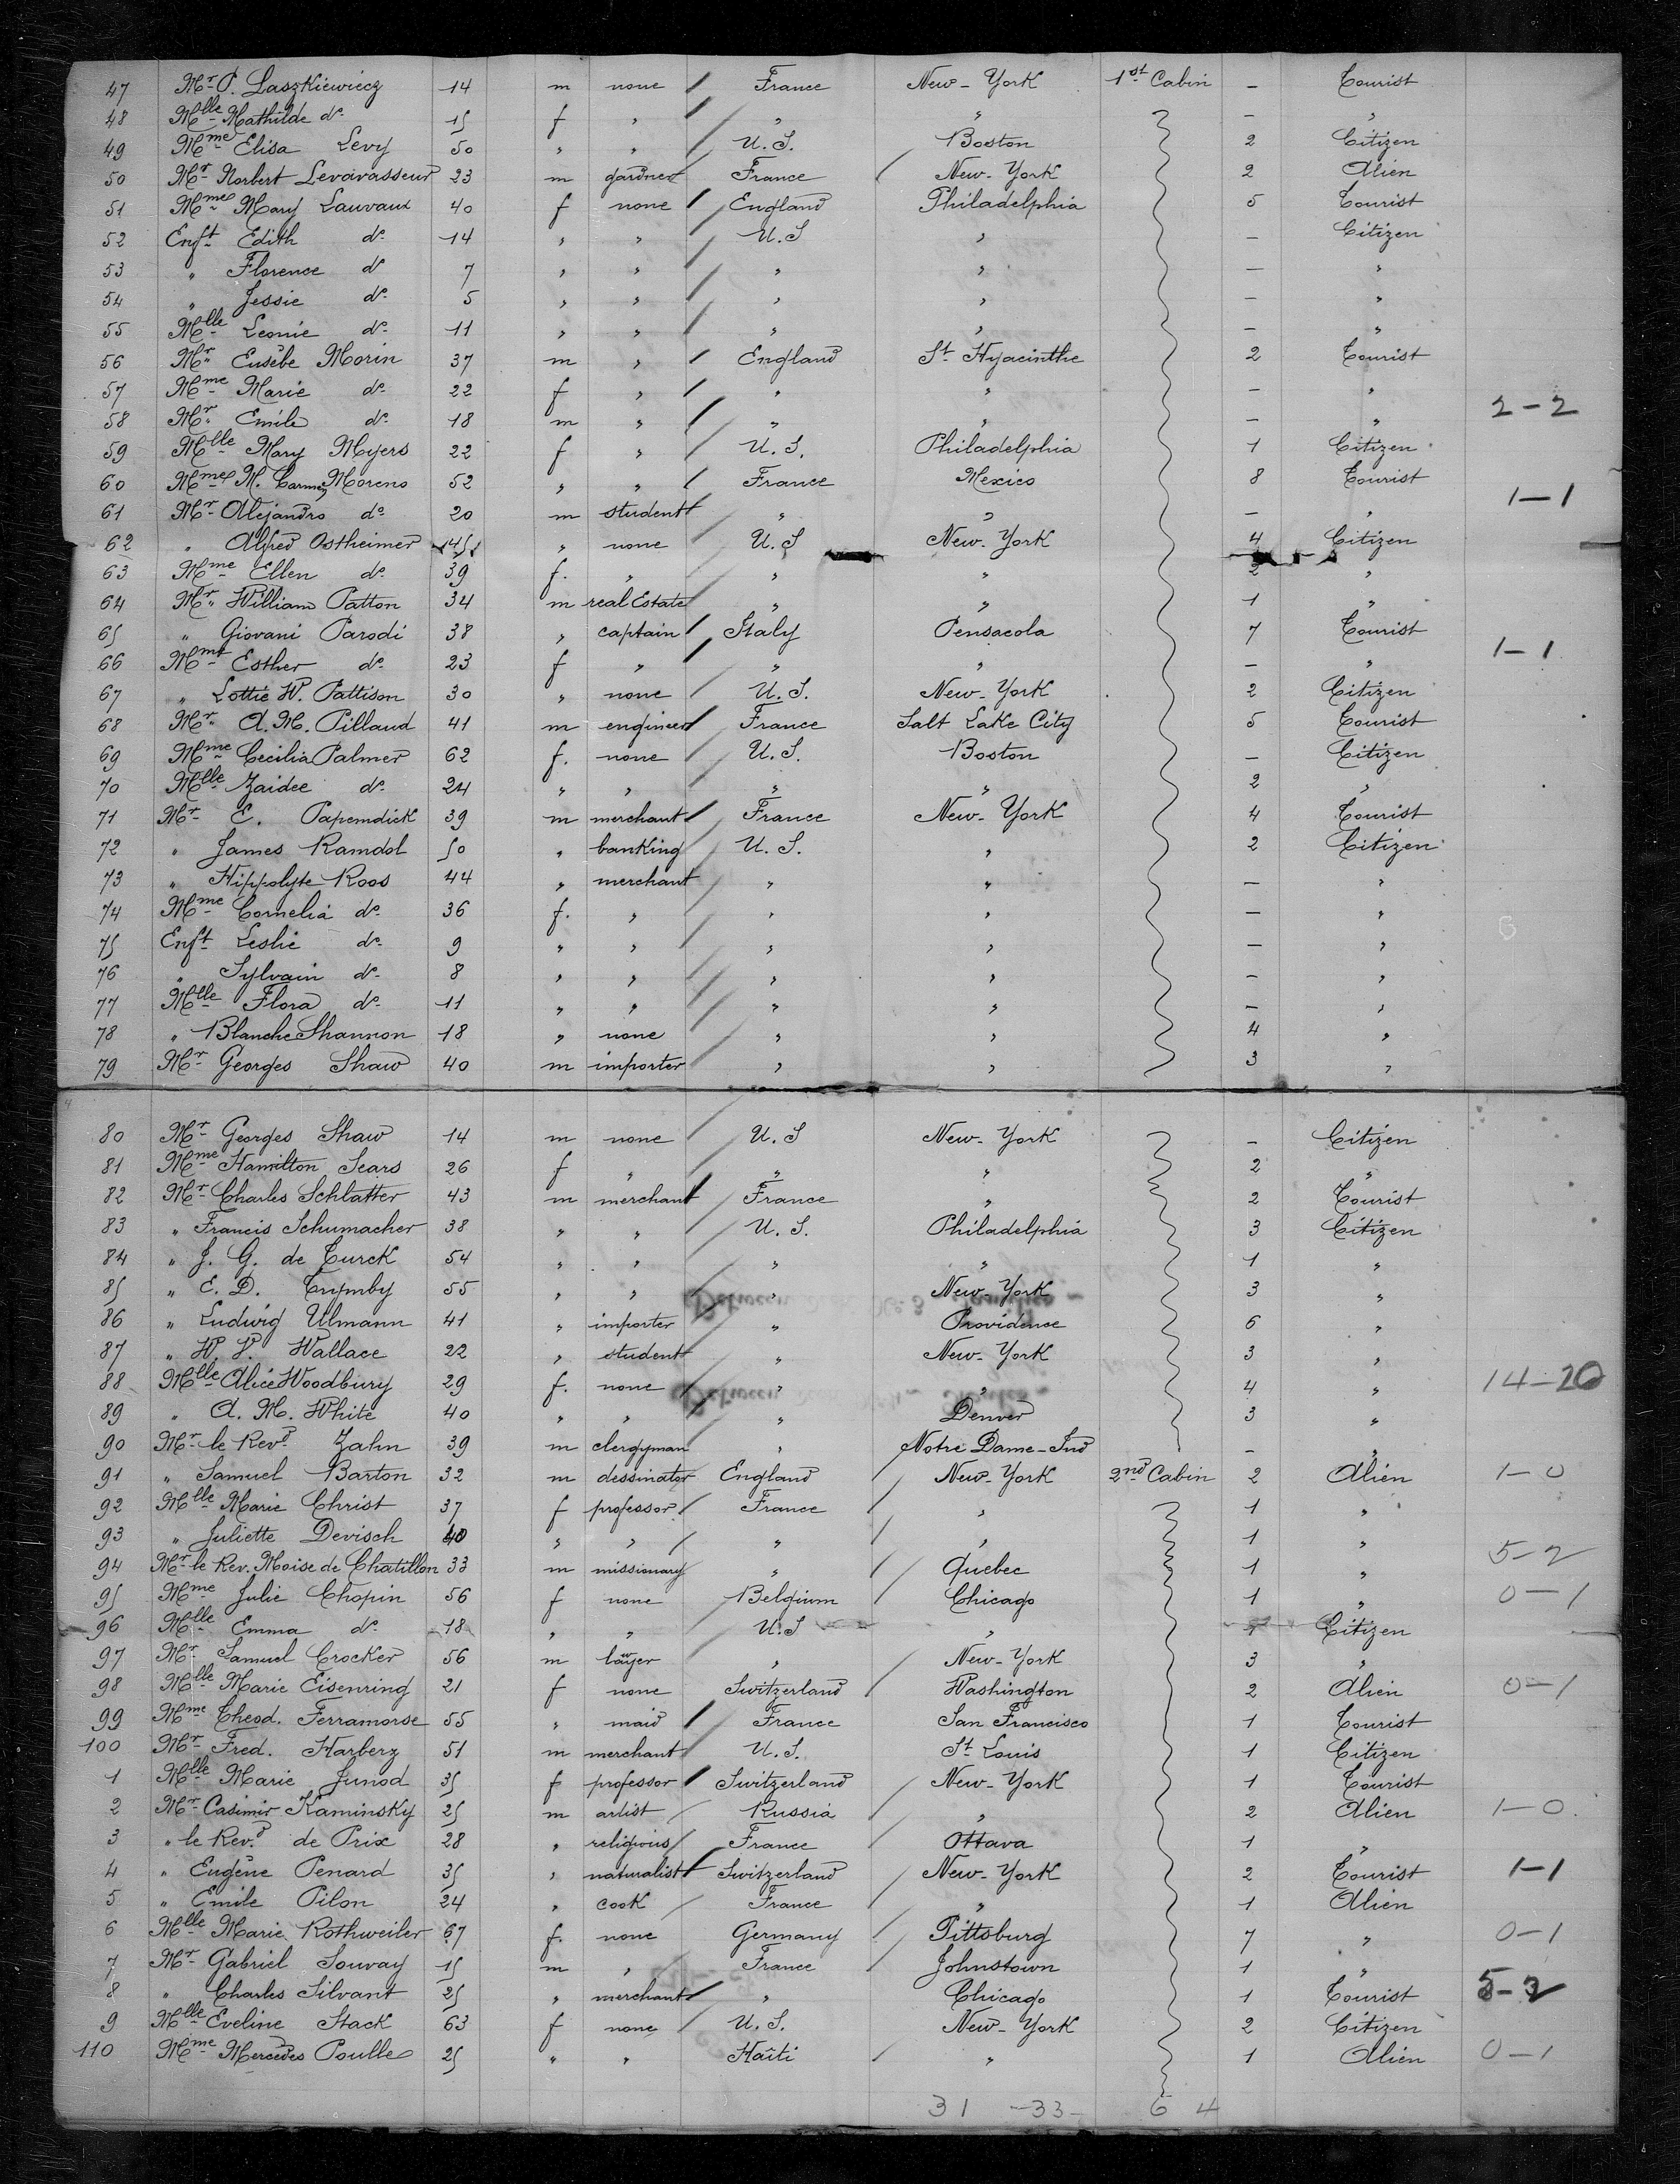 47 Mr P. Laszkiewiecz 14 m none / France New-York 1st Cabin - Tourist
48 Mlle Mathilde do 15 f " / " " - "
49 Mme Elisa Levy 50 " " / U.S. Boston 2 Citizen
50 Mr Norbert Levavasseur 23 m gardner / France / New-York 2 Alien
51 Mme Mary Lauvaux 40 f none / England Philadelphia 5 Tourist
52 Enft Edith do 14 " " / U.S " - Citizen
53 " Florence do 7 " " / " " - "
54 " Jessie do 5 " " / " " - "
55 Mlle Leonie do 11 " " / " " - "
56 Mr Eusèbe Morin 37 m " / England St Hyacinthe 2 Tourist
57 Mme Marie do 22 f " / " " - "
58 Mr Emile do 18 m " / " " - " 2-2
59 Mlle Mary Myers 22 f " / U.S. Philadelphia 1 Citizen
60 Mme M. Carmen Moreno 52 " " / France Mexico 8 Tourist
61 Mr Alejandro do 20 m student / " " - " 1-1
62 " Alfred Ostheimer 45 " none / U.S New-York 4 Citizen
63 Mme Ellen do 39 f. " / " " 2 "
64 Mr William Patton 34 m real Estate / " " 1 "
65 " Giovani Parodi 38 " captain / Italy Pensacola 7 Tourist
66 Mme Esther do 23 f " / " " - " 1-1
67 " Lottie W. Pattison 30 " none / U.S. New-York 2 Citizen
68 Mr A. M. Pillaud 41 m engineer / France Salt Lake City 5 Tourist
69 Mme Cecilia Palmer 62 f. none / U.S. Boston - Citizen
70 Mlle Zaidee do 24 " " / " " 2 "
71 Mr E. Papemdick 39 m merchant / France New-York 4 Tourist
72 " James Ramdol 50 " banking / U.S. " 2 Citizen
73 " Hippolyte Roos 44 " merchant / " " - "
74 Mme Cornelia do 36 f. " / " " - "
75 Enft Leslie do 9 " " / " " - "
76 " Sylvain do 8 " " / " " - "
77 Mlle Flora do 11 " " / " " - "
78 " Blanche Shannon 18 " none / " " 4 "
79 Mr Georges Shaw 40 m importer / " " 3 "
80 Mr Georges Shaw 14 m none / U.S New-York - Citizen
81 Mme Hamilton Sears 26 f " / " " 2 "
82 Mr Charles Schlatter 43 m merchant / France " 2 Tourist
83 " Francis Schumacher 38 " " / U.S. Philadelphia 3 Citizen
84 " J. G. de Turck 54 " " / " " 1 "
85 " E. D. 55 " " / " New-York 3 "
86 " Ludwig Ulmann 41 " importer / " Providence 6 "
87 " W. P. Wallace 22 " student / " New-York 3 "
88 Mlle Alice Woodbury 29 f. none / " " 4 " 14-20
89 " A. M. White 40 " " / " Denver 3 "
90 Mr le Revd Zahn 39 m clergyman / " Notre Dame-Ind - "
91 " Samuel Barton 32 m dessinator England / New-York 2nd Cabin 2 Alien 1-0
92 Mlle Marie Christ 37 f professor / France / " 1 "
93 " Juliette Devisch 40 " " / " / " 1 "
94 Mr le Rev. Moise de Chatillon 33 m missionary " / Quebec 1 " 5-2
95 Mme Julie Chopin 56 f none / Belgium / Chicago 1 " 0-1
96 Mlle Emma do 18 " " U.S " 1 Citizen
97 Mr Samuel Crocker 56 m lawyer " / New-York 3 "
98 Mlle Marie Eisenring 21 f none Switzerland / Washington 2 Alien 0-1
99 Mme Theod. Ferramorse 55 " maid / France San Francisco 1 Tourist
100 Mr Fred. Harberz 51 m merchant / U.S. St Louis 1 Citizen
1 Mlle Marie Junod 35 f professor / Switzerland / New-York 1 Tourist
2 Mr Casimir Kaminsky 25 m artist / Russia / " 2 Alien 1-0.
3 " le Revd de Prix 28 " religious / France / Ottava 1 "
4 " Eugène Penard 35 " naturalist / Switzerland / New-York 2 Tourist 1-1
5 " Emile Pilon 24 " cook / France / " 1 Alien
6 Mlle Marie Rothweiler 67 f. none Germany / Pittsburg 7 " 0-1
7 Mr Gabriel Souvay 15 m " France / Johnstown 1 "
8 " Charles Silvant 25 " merchant / " Chicago 1 Tourist 5-2
9 Mlle Eveline Stack 63 f none / U.S. New-York 2 Citizen
110 Mme Mercedes Poulle 25 " " Haïti / " 1 Alien 0-1
31 -33- 6 4